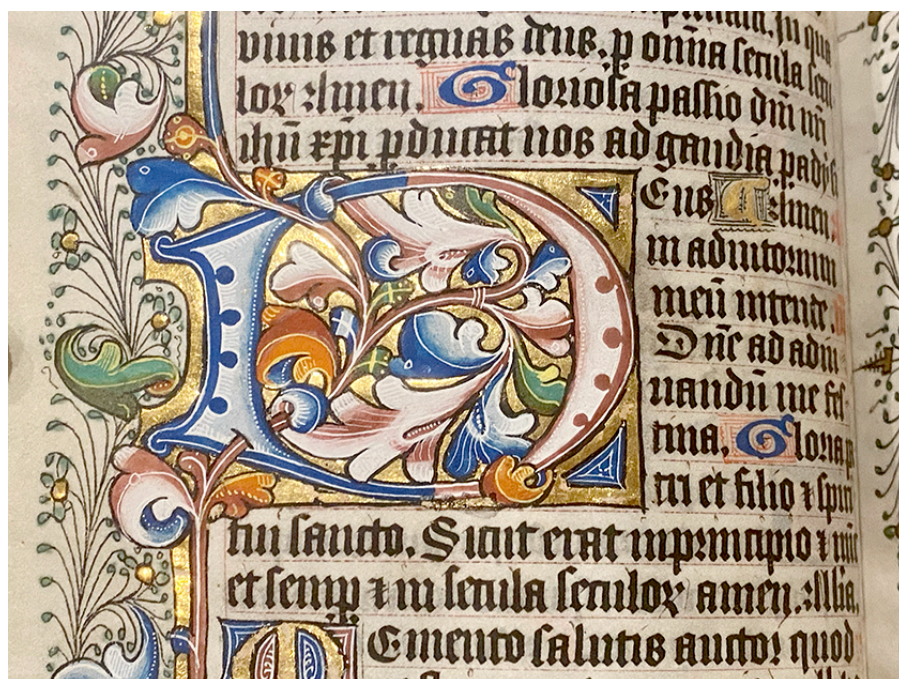 vivis et regnas deus. p om̄ia secula secu
loꝝ Amen. Gloriosa passio dn̄i nr̄i
ihū xpi ꝑducat nos ad gaudia padisi
Deus Amen.
in adiutorium
meū intende.
Dn̄e ad adiu
uandū me fes
tina. Gloria p
tri et filio ⁊ spiri
tui sancto. Sicut erat in principio ⁊ nūc
et semꝑ ⁊ in secula seculoꝝ amen. Alla.
Memento salutis auctor quod